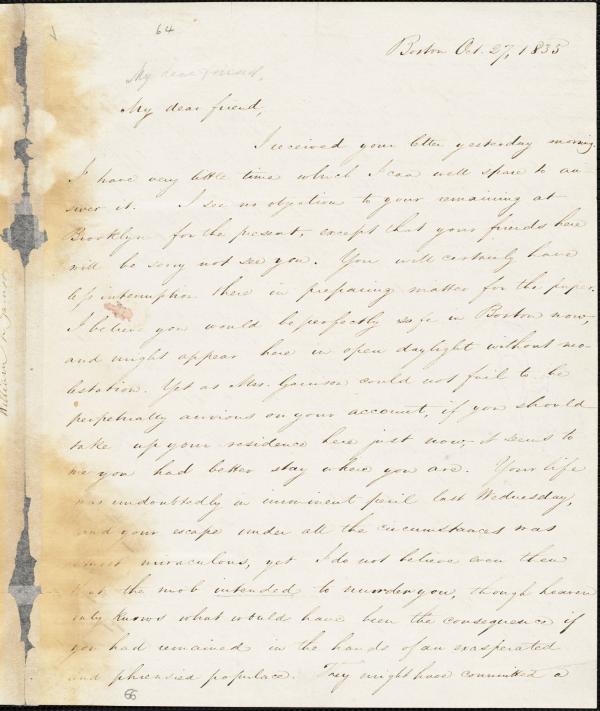 64
Boston Oct. 27, 1835
My dear friend,
My dear friend,
I received your letter yesterday morning.
I have very little time which I can well spare to an-
swer it. I see no objection to your remaining at
Brooklyn for the present, except that your friends here
will be sorry not see you. You will certainly have
less interruption there in preparing matter for the paper.
I believe you would be perfectly safe in Boston now,
and might appear here in open daylight without mo-
lestation. Yet as Mrs. Garrison could not fail to be
perpetually anxious on your account, if you should
take up your residence here just now, it seems to
me you had better stay where you are. Your life
was undoubtedly in imminent peril last Wednesday,
and your escape under all the circumstances was
almost miraculous, yet I do not believe even then
that the mob intended to murder you, though heaven
only knows what would have been the consequence if
you had remained in the hands of an exasperated
and phrensied populace. They might have committed a
66